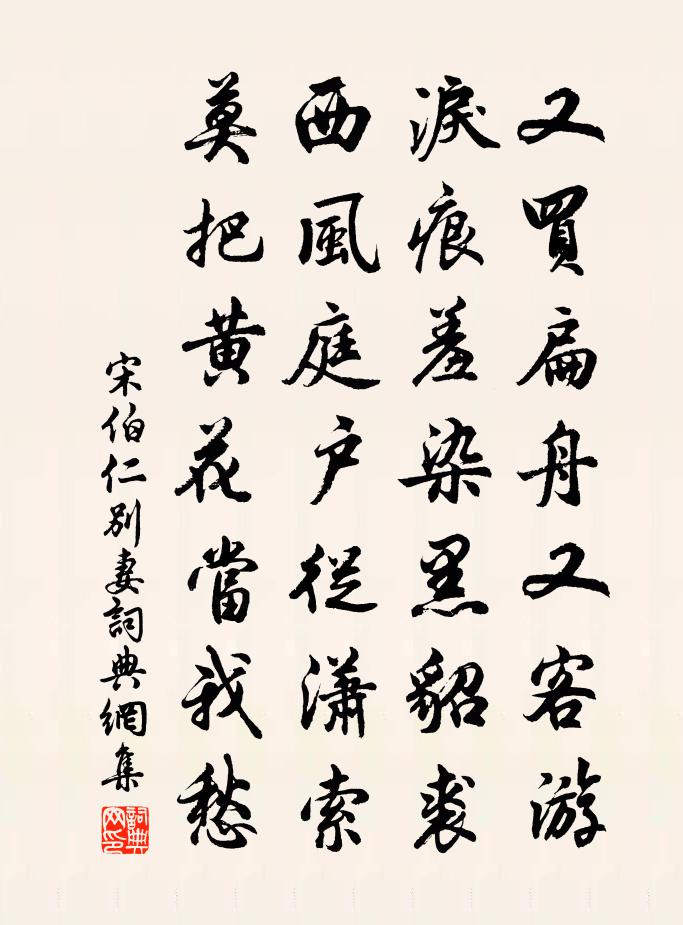 又買扁舟又客游
淚痕羞染黑貂裘
西風庭户從瀟索
莫把黄花當我愁
宋伯仁別妻詞典網集
詞典网印